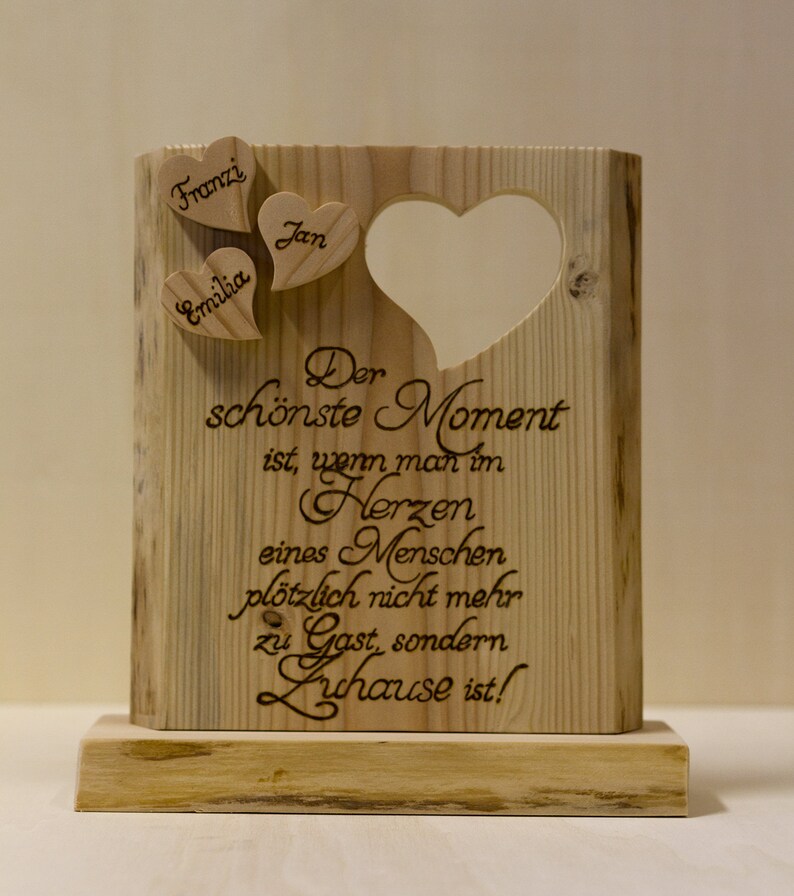 Franzi
Jan
Emilia
Der
schönste Moment
ist, wenn man im
Herzen
eines Menschen
plötzlich nicht mehr
zu Gast, sondern
Zuhause ist!